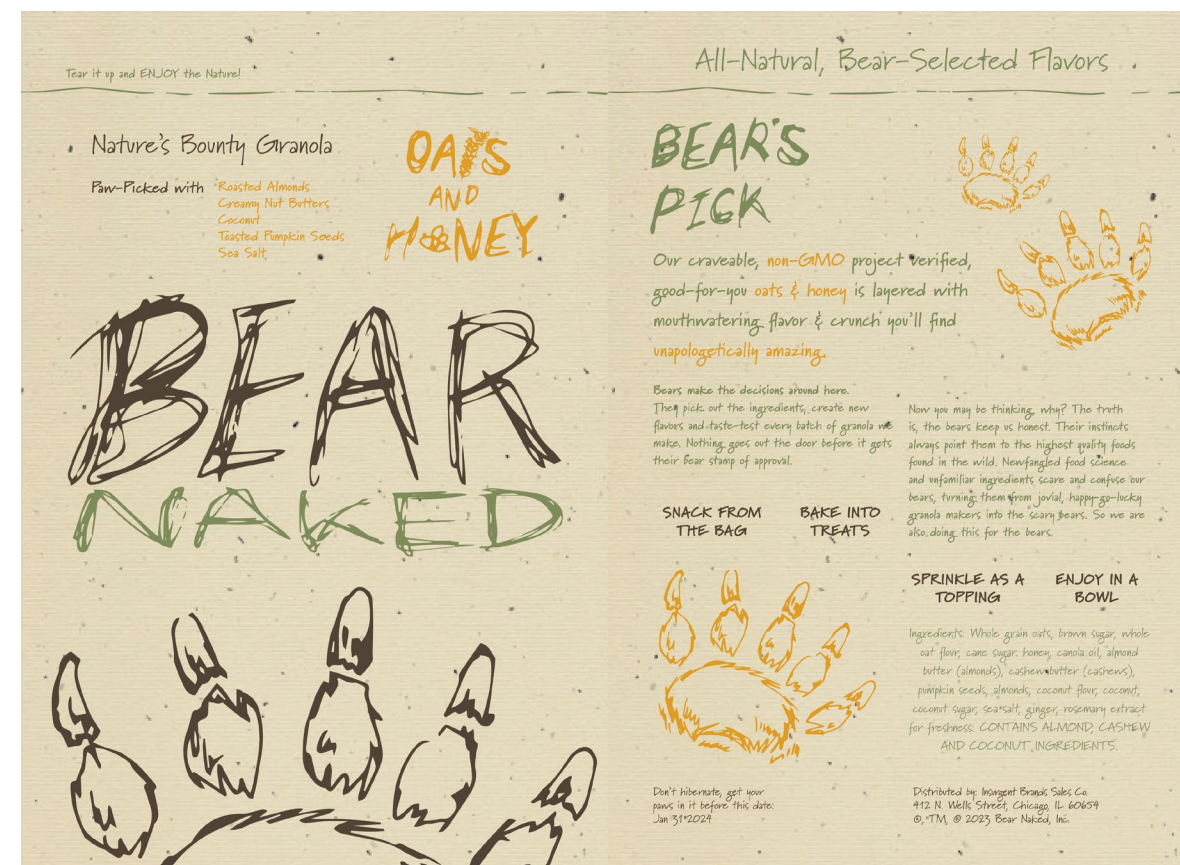 Tear it up and ENJOY the Nature!
Nature's Bounty Granola
Paw-Picked with
Roasted Almonds
Creamy Nut Butters
Coconut
Toasted Pumpkin Seeds
Sea Salt,
OATS
AND
HONEY
BEAR
NAKED
All-Natural, Bear-Selected Flavors
BEAR'S
PICK
Our craveable, non-GMO project verified,
good-for-you oats & honey is layered with
mouthwatering flavor & crunch you'll find
unapologetically amazing.
Bears make the decisions around here.
They pick out the ingredients, create new
flavors and taste-test every batch of granola we
make. Nothing goes out the door before it gets
their bear stamp of approval.
Now you may be thinking, why? The truth
is, the bears keep us honest. Their instincts
always point them to the highest quality foods
found in the wild. Newfangled food science
and unfamiliar ingredients scare and confuse our
bears, turning them from jovial, happy-go-lucky
granola makers into the scary bears. So we are
also doing this for the bears.
SNACK FROM
THE BAG
BAKE INTO
TREATS
SPRINKLE AS A
TOPPING
ENJOY IN A
BOWL
Ingredients: Whole grain oats, brown sugar, whole
oat flour, cane sugar. honey, canola oil, almond
butter (almonds), cashew butter (cashews),
pumpkin seeds, almonds, coconut flour, coconut,
coconut sugar, sea salt, ginger, rosemary extract
for freshness: CONTAINS ALMOND, CASHEW
AND COCONUT INGREDIENTS.
Don't hibernate, get your
paws in it before this date:
Jan 31 2024
Distributed by: Insurgent Brands Sales Co.
412 N. Wells Street, Chicago, IL 60654
®, TM, © 2023 Bear Naked, Inc.